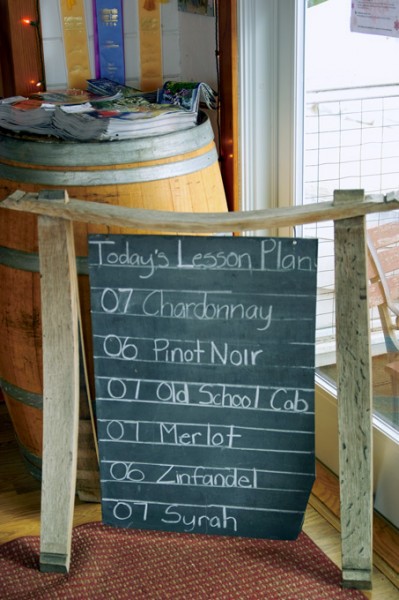 Today's Lesson Plan
07 Chardonnay
06 Pinot Noir
07 Old School Cab
07 Merlot
06 Zinfandel
07 Syrah